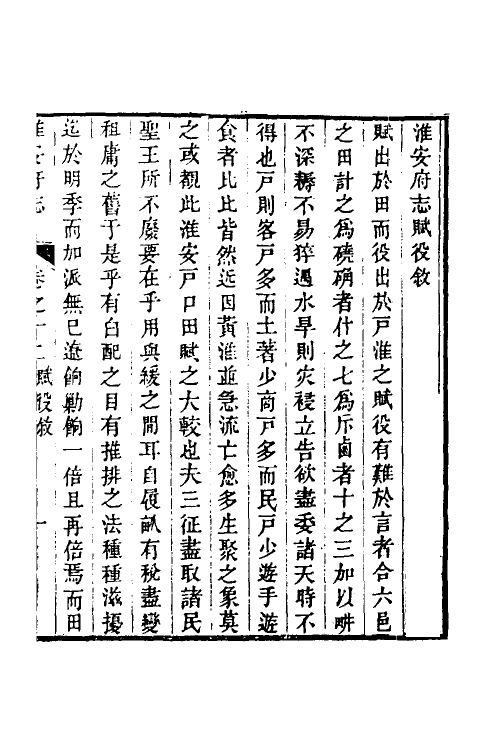 淮安府志賦役敘
賦出於田而役出於戸淮之賦役有難於言者合六邑
之田計之為磽确者什之七為斥鹵者十之三加以畊
不深耨不易猝遇水旱則灾祲立告欲盡委諸天時不
得也戸則客戸多而土著少商戸多而民戸少遊手遊
食者比比皆然近因黃淮並急流亡愈多生聚之象莫
之或覩此淮安戸口田賦之大較也夫三征盡取諸民
聖王所不廢要在乎用與緩之間耳自履畝有稅盡變
租庸之舊于是乎有白配之目有推排之法種種滋擾
迄於明季而加派無已遼餉勦餉一倍且再倍焉而田
淮安府志 卷之十二 賦役敘 一